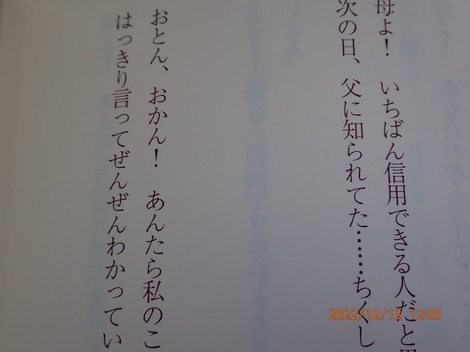 母よ！　いちばん信用できる人だと思
次の日、父に知られてた……ちくし
おとん、おかん！　あんたら私のこ
はっきり言ってぜんぜんわかってい
2022/12/19 12:05